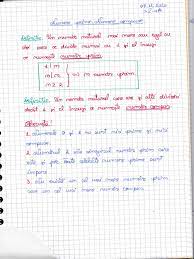 Numere prime. Numere compuse
Definiție: Un număr natural mai mare sau egal cu
doi care se divide numai cu 1 și el însuși
se numește număr prim.
1 | m
m | m
m ≥ 2
⇒ m număr prim
Definiție: Un număr natural care are și alți divizori
decât 1 și el însuși se numește număr compus.
Observații:
1. Numerele 0 și 1 nu sunt nici prime și nici
compuse.
2. Numărul 2 este singurul număr prim care
este și par, toate celelalte numere prime sunt
impare.
3. Nu există un cel mai mare număr prim